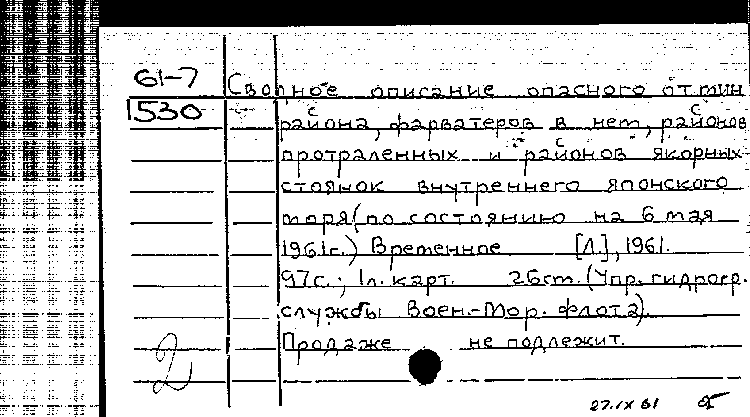 61-7 Сводное описание опасного от мин
1530 района, фарватеров в нем, районов
протраленных и районов якорных
стоянок внутреннего японского
моря (по состоянию на 6 мая
1961г.) Временное [Л.], 1961.
97с.; 1л. карт. 26cm. (Упр. гидрогр.
службы Воен.-Мор. флота).
Продаже не подлежит.
2
27.IX 61